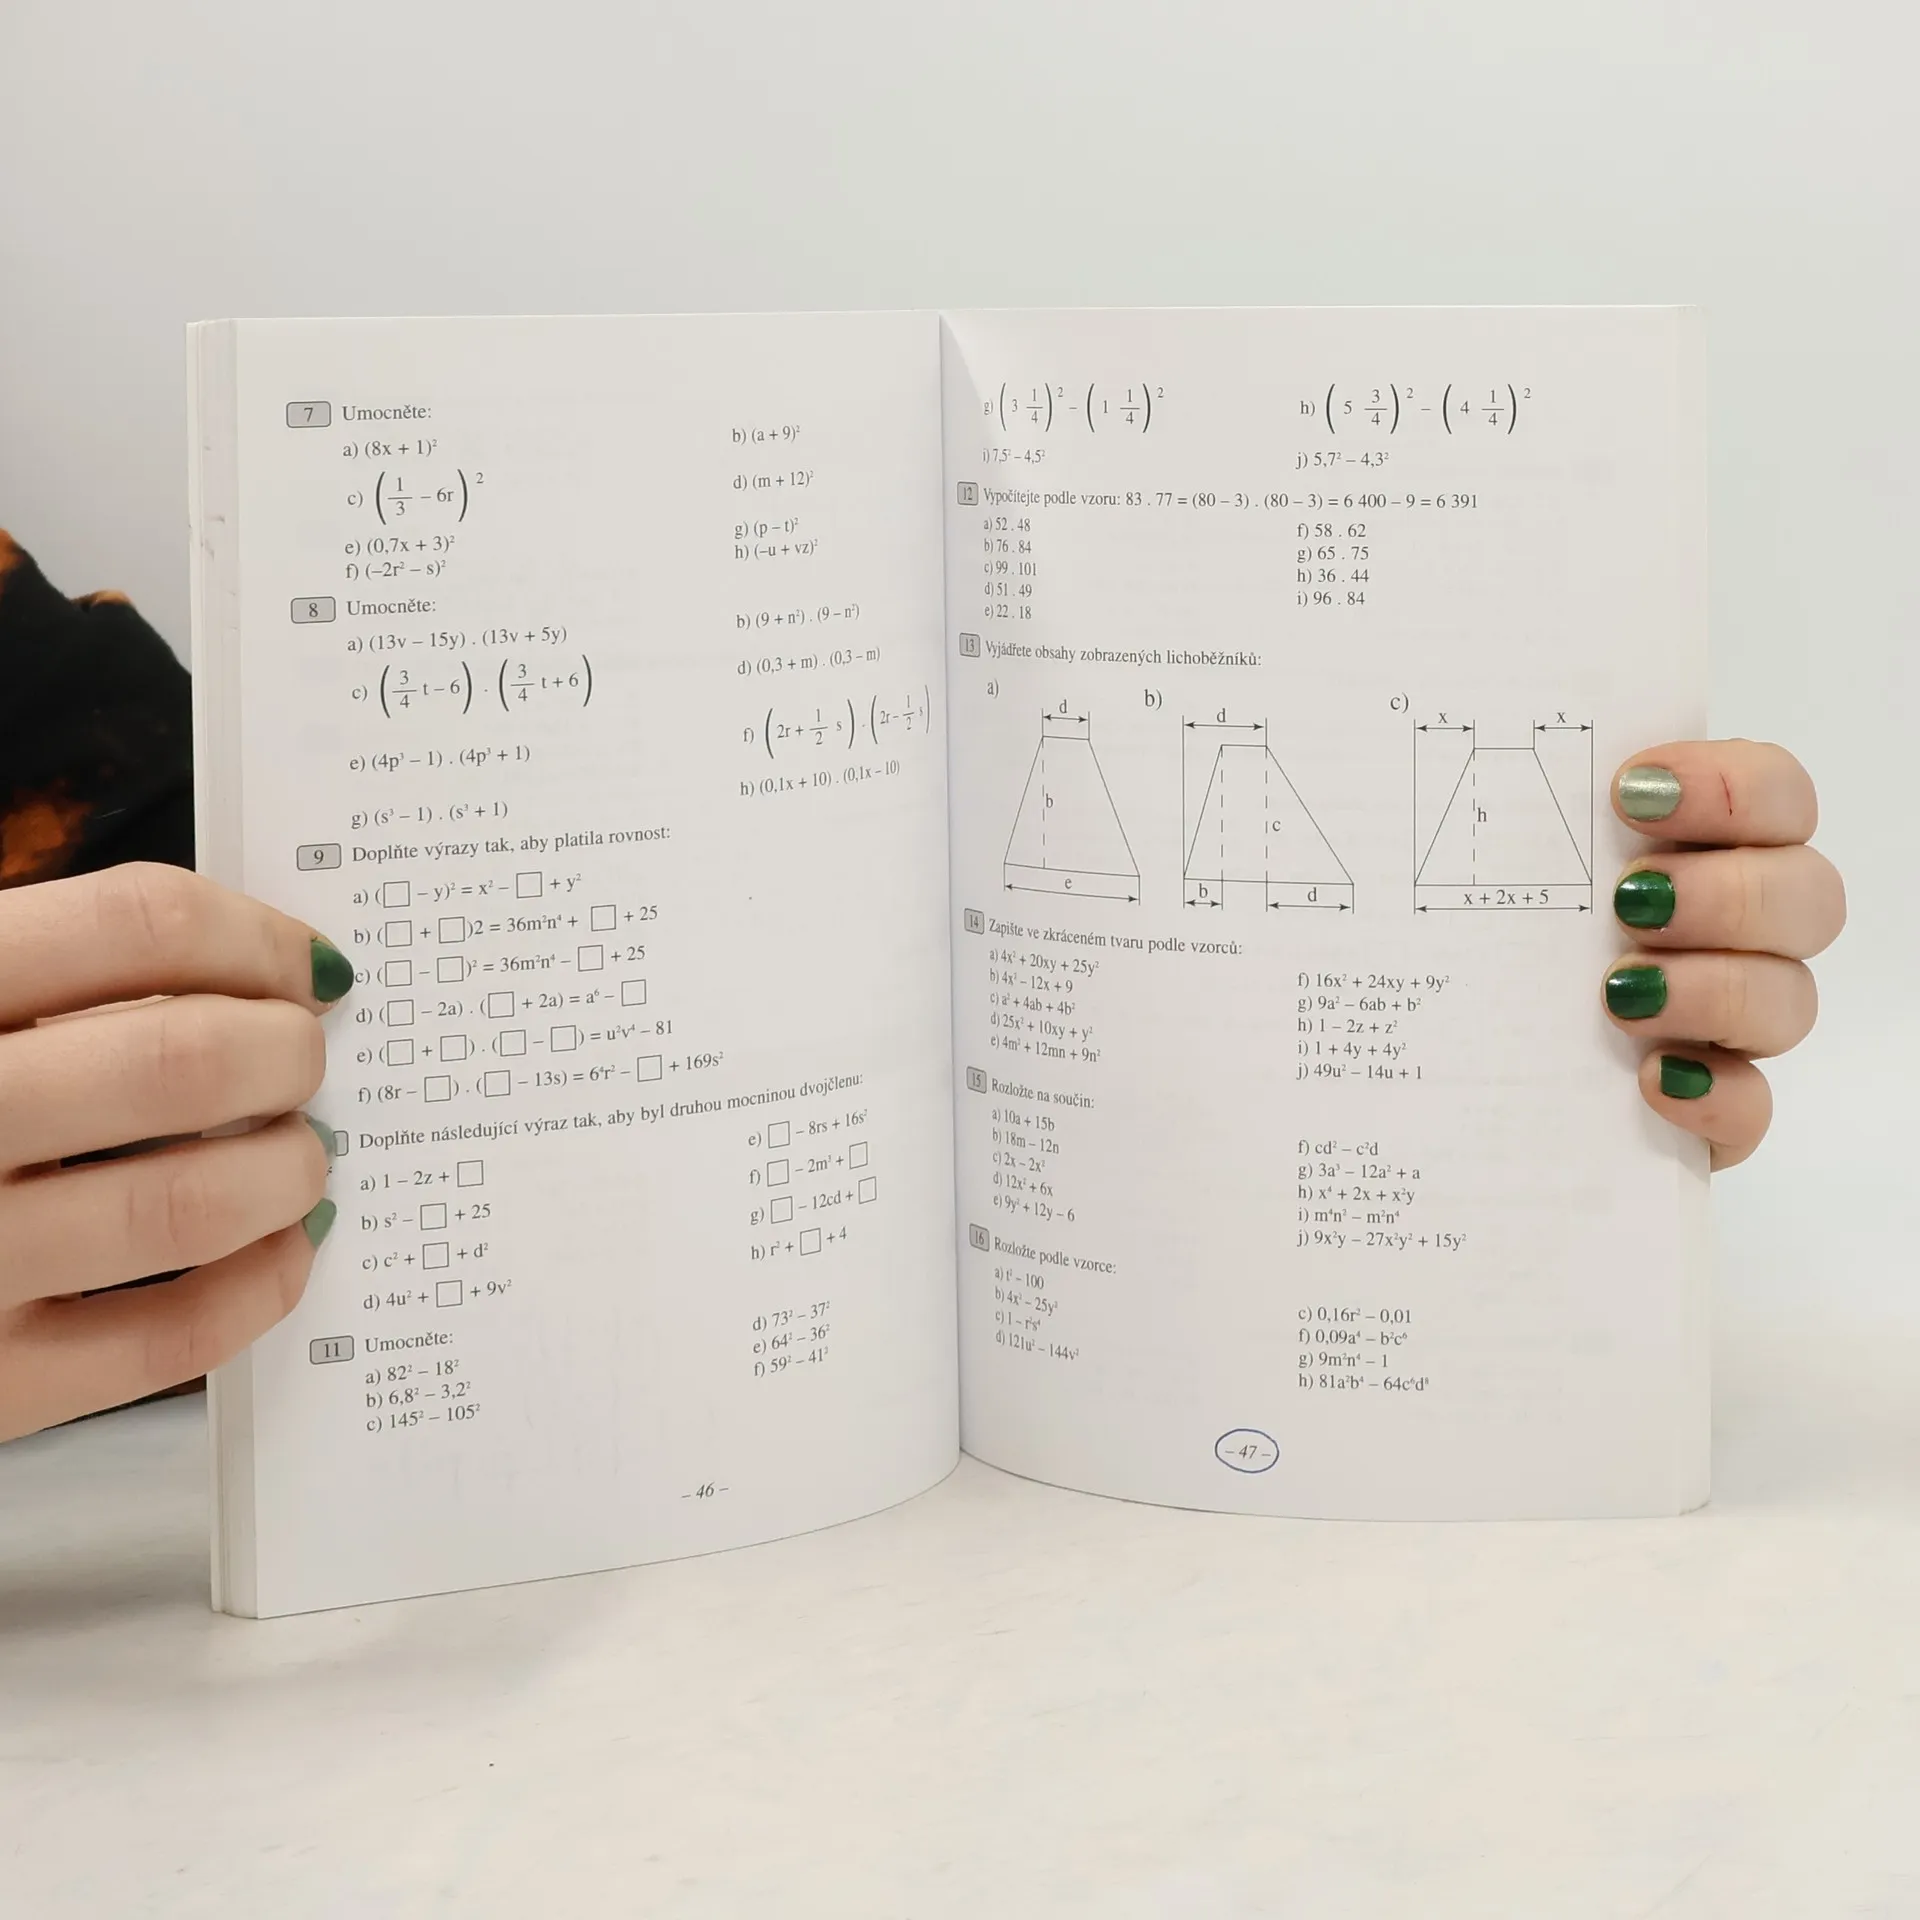 7 Umocněte:
a) (8x + 1)²
b) (a + 9)²
c) (1/3 – 6r)²
d) (m + 12)²
e) (0,7x + 3)²
g) (p – t)²
f) (–2r² – s)²
h) (–u + vz)²
8 Umocněte:
a) (13v – 15y) . (13v + 5y)
b) (9 + n²) . (9 – n²)
c) (3/4 t – 6) . (3/4 t + 6)
d) (0,3 + m) . (0,3 – m)
e) (4p³ – 1) . (4p³ + 1)
f) (2r + 1/2 s) . (2r – 1/2 s)
g) (s³ – 1) . (s³ + 1)
h) (0,1x + 10) . (0,1x – 10)
9 Doplňte výrazy tak, aby platila rovnost:
a) (□ – y)² = x² – □ + y²
b) (□ + □)2 = 36m²n⁴ + □ + 25
c) (□ – □)² = 36m²n⁴ – □ + 25
d) (□ – 2a) . (□ + 2a) = a⁶ – □
e) (□ + □) . (□ – □) = u²v⁴ – 81
f) (8r – □) . (□ – 13s) = 6⁴r² – □ + 169s²
Doplňte následující výraz tak, aby byl druhou mocninou dvojčlenu:
a) 1 – 2z + □
b) s² – □ + 25
c) c² + □ + d²
d) 4u² + □ + 9v²
e) □ – 8rs + 16s²
f) □ – 2m³ + □
g) □ – 12cd + □
h) r² + □ + 4
11 Umocněte:
a) 82² – 18²
b) 6,8² – 3,2²
c) 145² – 105²
d) 73² – 37²
e) 64² – 36²
f) 59² – 41²
– 46 –
g) (3 1/4)² – (1 1/4)²
h) (5 3/4)² – (4 1/4)²
i) 7,5² – 4,5²
j) 5,7² – 4,3²
12 Vypočítejte podle vzoru: 83 . 77 = (80 – 3) . (80 – 3) = 6 400 – 9 = 6 391
a) 52 . 48
b) 76 . 84
c) 99 . 101
d) 51 . 49
e) 22 . 18
f) 58 . 62
g) 65 . 75
h) 36 . 44
i) 96 . 84
13 Vyjádřete obsahy zobrazených lichoběžníků:
a)
d
b
e
b)
d
c
b
d
c)
x
x
h
x + 2x + 5
14 Zapište ve zkráceném tvaru podle vzorců:
a) 4x² + 20xy + 25y²
b) 4x² – 12x + 9
c) a² + 4ab + 4b²
d) 25x² + 10xy + y²
e) 4m² + 12mn + 9n²
f) 16x² + 24xy + 9y²
g) 9a² – 6ab + b²
h) 1 – 2z + z²
i) 1 + 4y + 4y²
j) 49u² – 14u + 1
15 Rozložte na součin:
a) 10a + 15b
b) 18m – 12n
c) 2x – 2x²
d) 12x² + 6x
e) 9y² + 12y – 6
f) cd² – c²d
g) 3a³ – 12a² + a
h) x⁴ + 2x + x²y
i) m⁴n² – m²n⁴
j) 9x²y – 27x²y² + 15y²
16 Rozložte podle vzorce:
a) t² – 100
b) 4x² – 25y²
c) 1 – r²s⁴
d) 121u² – 144v²
c) 0,16r² – 0,01
f) 0,09a⁴ – b²c⁶
g) 9m²n⁴ – 1
h) 81a²b⁴ – 64c⁶d⁸
– 47 –